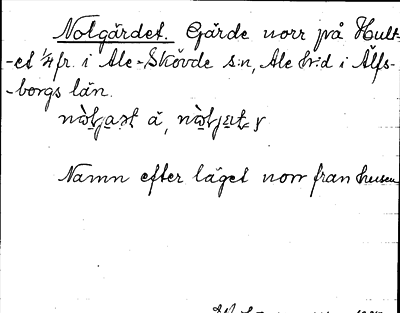 Nolgärdet. Gärde norr på Hult-
-et 1/4 fr. i Ale-Skövde s:n, Ale h:d i Älfs-
-borgs län.
Namn efter läget norr från husen